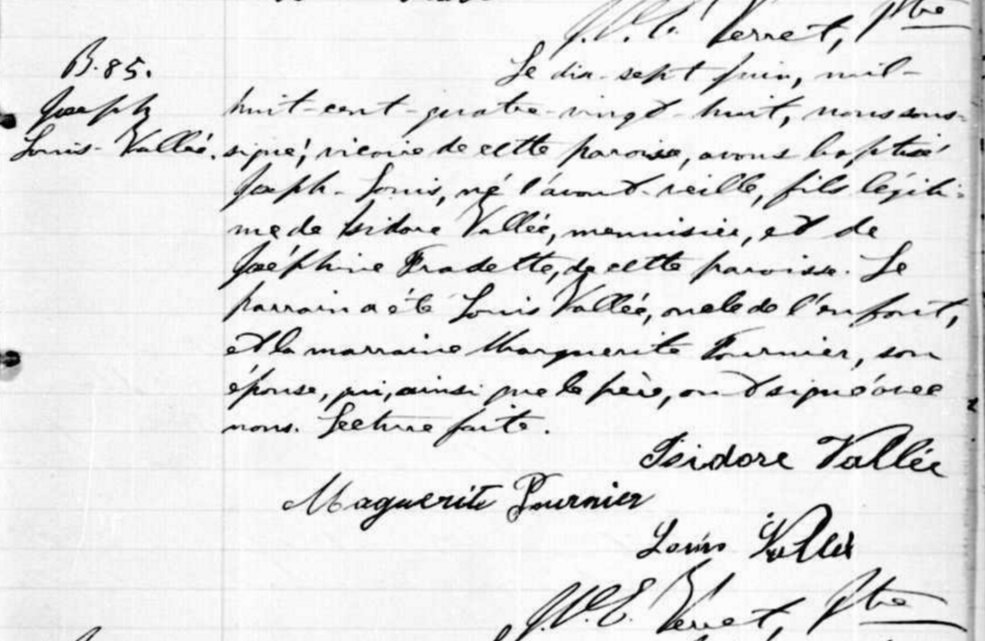 J.V.E. Verret, Ptre
B. 85.
Joseph
Louis-Vallée.
Le dix-sept juin, mil-
huit-cent-quatre-vingt-huit, nous sous-
signé, vicaire de cette paroisse, avons baptisé
Joseph-Louis, né l'avant-veille, fils légiti-
me de Isidore Vallée, menuisier, et de
Joséphine Fradette, de cette paroisse. Le
parrain a été Louis Vallée, oncle de l'enfant,
et la marraine Marguerite Fournier, son
épouse, qui, ainsi que le père, ont signé avec
nous. Lecture faite.
Isidore Vallée
Maguerite Fournier
Louis Vallée
Verret, Ptre